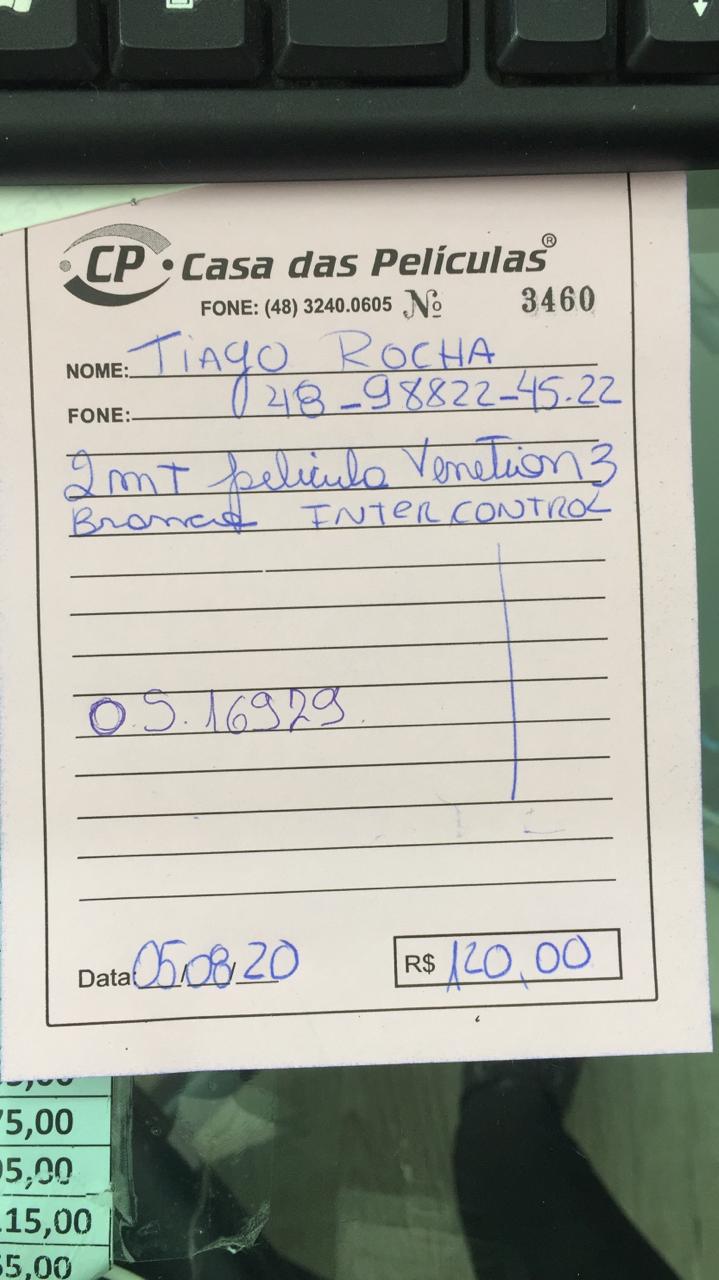 CP Casa das Películas®
FONE: (48) 3240.0605 Nº 3460
NOME: Tiago ROCHA
FONE: 48-98822-45.22
2mt película Venetian 3
Branca INTER CONTROL
O.S. 16929
Data: 05/08/20 R$ 120,00
75,00
95,00
15,00